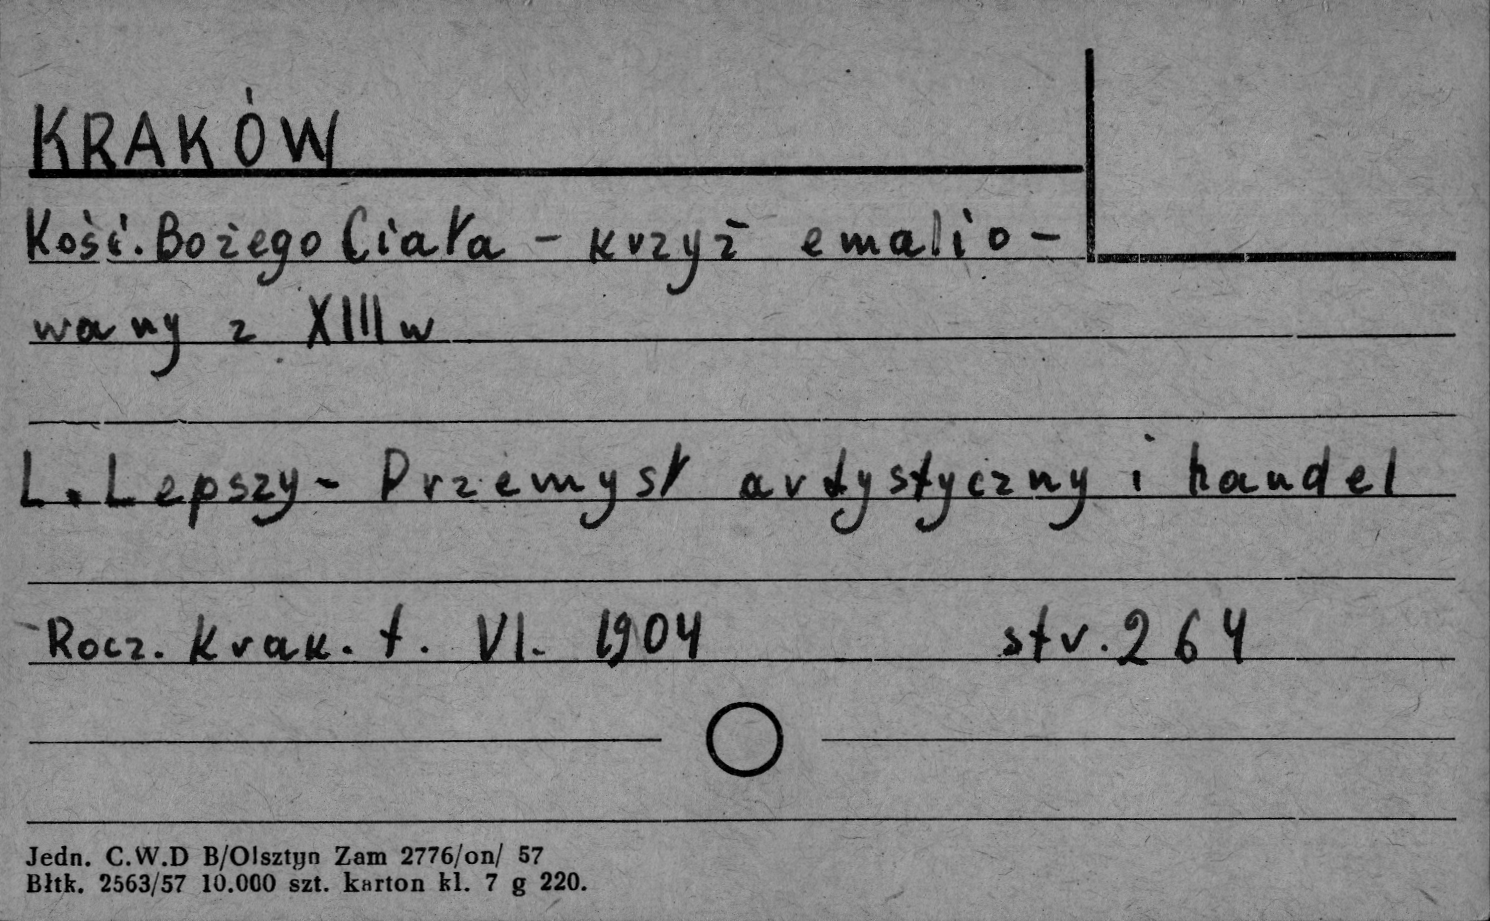 KRAKÓW
Kość. Bożego Ciała - krzyż emalio-
wany z XIII w
L. Lepszy - Przemysł artystyczny i handel
Rocz. Krak. t. VI. 1904 str. 264
Jedn. C.W.D B/Olsztyn Zam 2776/on/ 57
Błtk. 2563/57 10.000 szt. karton kl. 7 g 220.